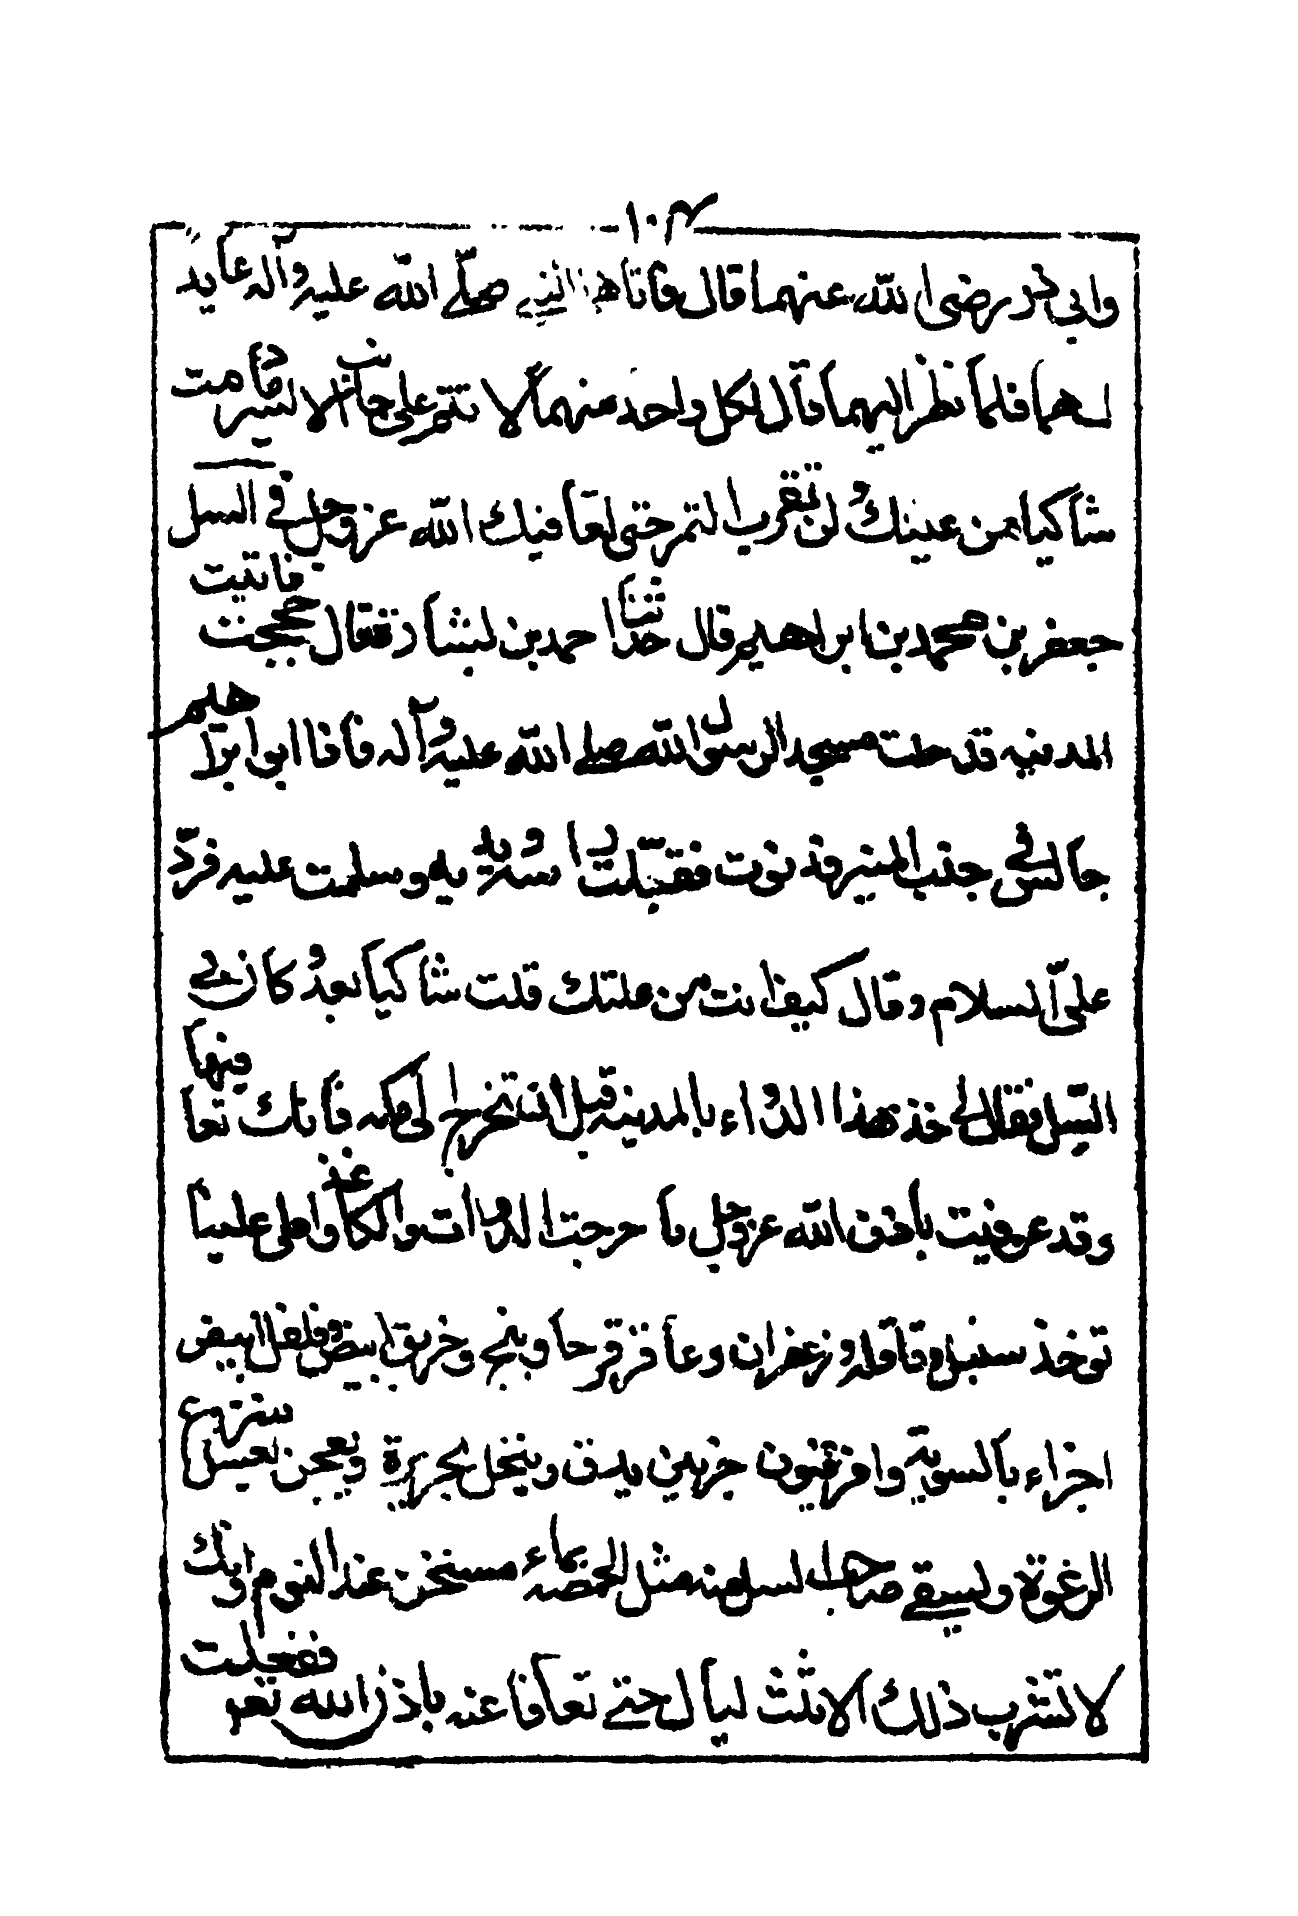 ١٠٣
وابي ذر رضى الله عنهما قال فاتاهما النبي صلّے الله عليه وآله عايد
لـهما فلما نظر اليهما قال لكل واحد منهما لا تتمر على جانب الايسر مادمت
شاكيا من عينك ولن تقرب التمر حتى يعافيك الله عز وجل في السل
جعفر بن محمد بن ابراهيم قال حدثنا احمد بن بشارة قال حججت فاتيت
المدينه فدخلت مسجد الرسول الله صلے الله عليه وآله فاذا ابو ابراهيم
جالس في جنب المنبر فدنوت فقبّلت راسه ويديه وسلمت عليه فردّ
علىّ السلام وقال كيف انت من علتك قلت شاكيا بعد وكان بي
السّل فقال لي خذ هذا الدواء بالمدينه قبل ان تخرج الى مكه فانك تعافا منها
وقد عوفيت باذن الله عز وجل فاخرجت الدواة والكاغذ واملى علينا
توخذ سنبل وقاقله وزعفران وعاقرقرحا وبنج وخربق ابيض وفلفل ابيض
اجزاء بالسويّه وافرفيون جزئين يدق وينخل بحريرة ويعجن بعسل منزوع
الرغوة ويسقے صاحب السل منه مثل الحمّصه بماء مسخن عند النوم وانك
لا تشرب ذلك الا ثلث ليال حتے تعافا عنه باذن الله تعم ففعلت